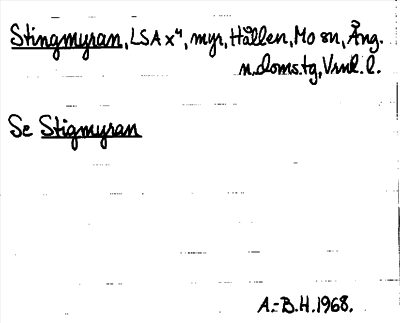 Stingmyran, LSA x⁴, myr, Hållen, Mo sn, Ång.
n. doms.tg, Vrnl. l.
Se Stigmyran
A.-B.H. 1968.